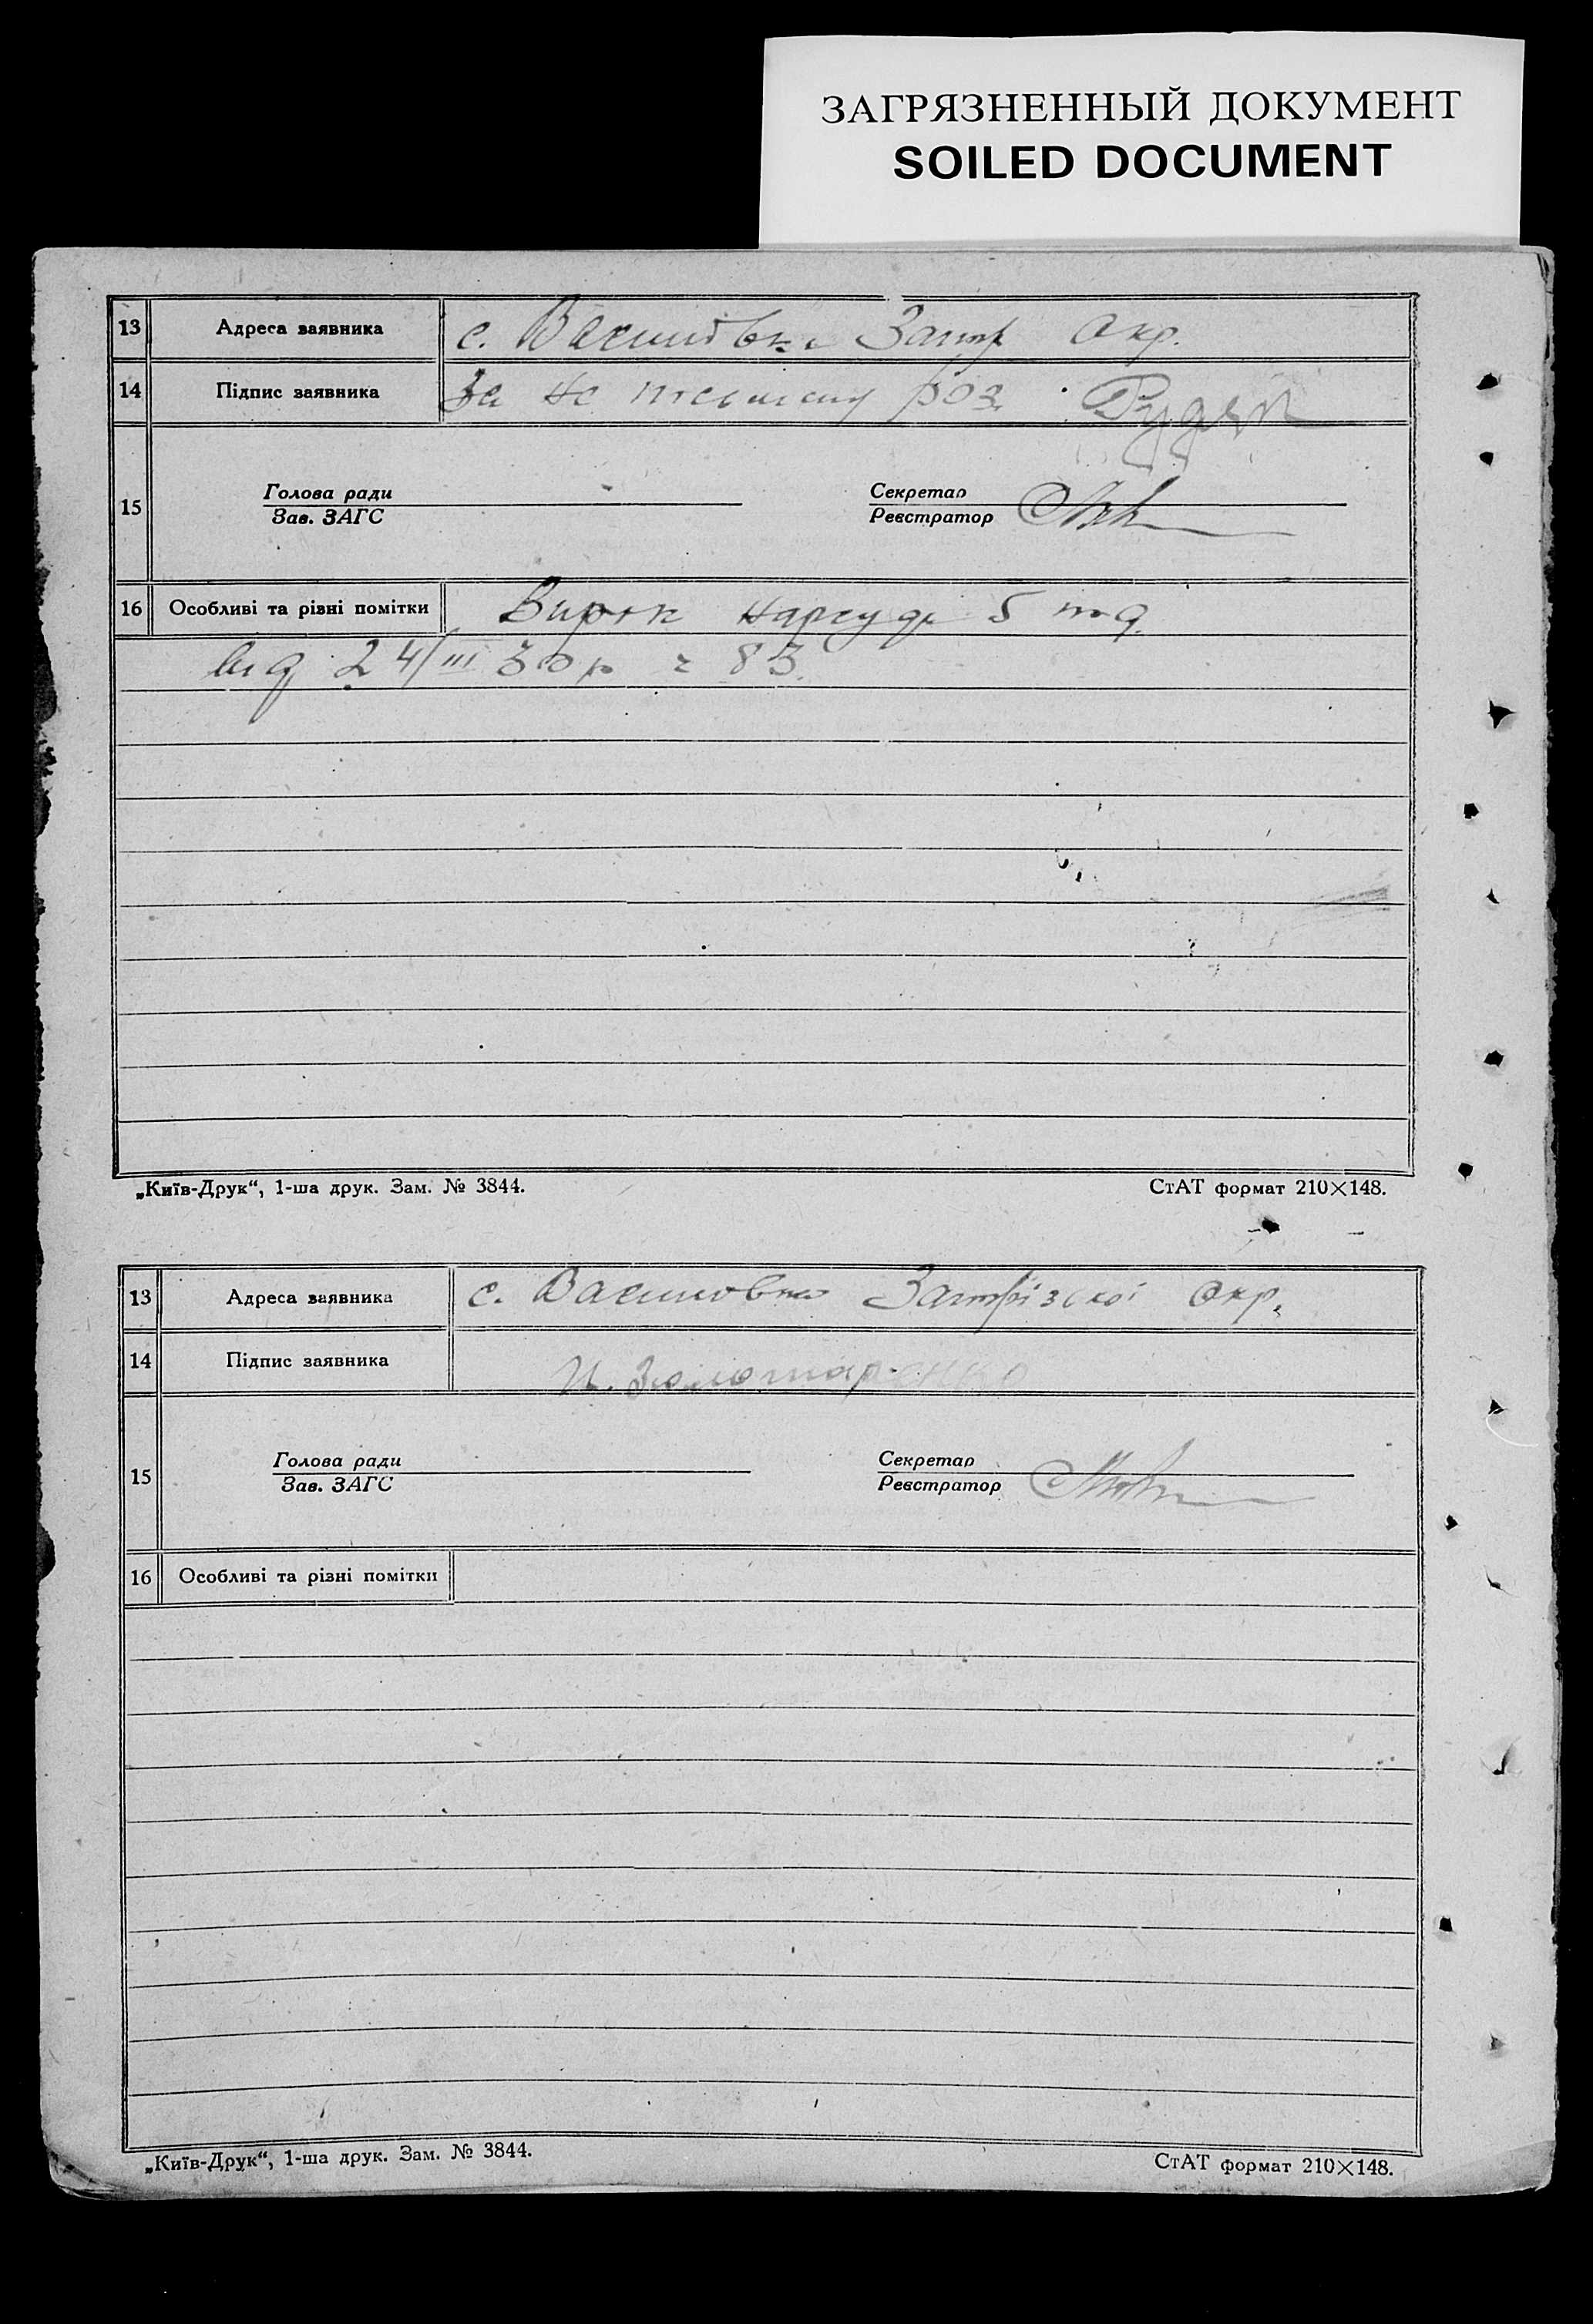 ЗАГРЯЗНЕННЫЙ ДОКУМЕНТ
SOILED DOCUMENT
13 Адреса заявника с. Василовка Запор Окр.
14 Підпис заявника За не письмену роз.
15 Голова ради Секретар
Зав. ЗАГС Реєстратор
16 Особливі та різні помітки Вирок нарсуда 5
від 24/III 30 р 83.
„Київ-Друк“, 1-ша друк. Зам. № 3844. СтАТ формат 210×148.
13 Адреса заявника с. Василовка Окр.
14 Підпис заявника Золотаренко
15 Голова ради Секретар
Зав. ЗАГС Реєстратор
16 Особливі та різні помітки
„Київ-Друк“, 1-ша друк. Зам. № 3844. СтАТ формат 210×148.